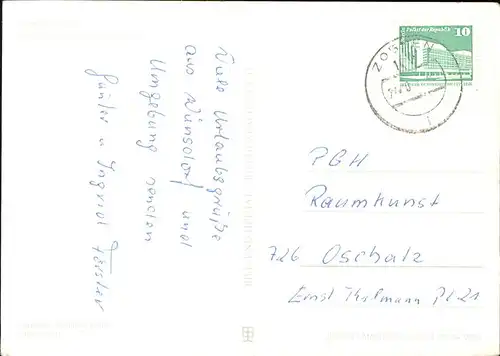 Viele Urlaubsgrüße
aus Wünsdorf und
Umgebung senden
Günter u Ingrid Förster
10
Palast der Republik
ZOSSEN
1
PGH
Raumkunst
726 Oschatz
Ernst Thälmann Pl. 21